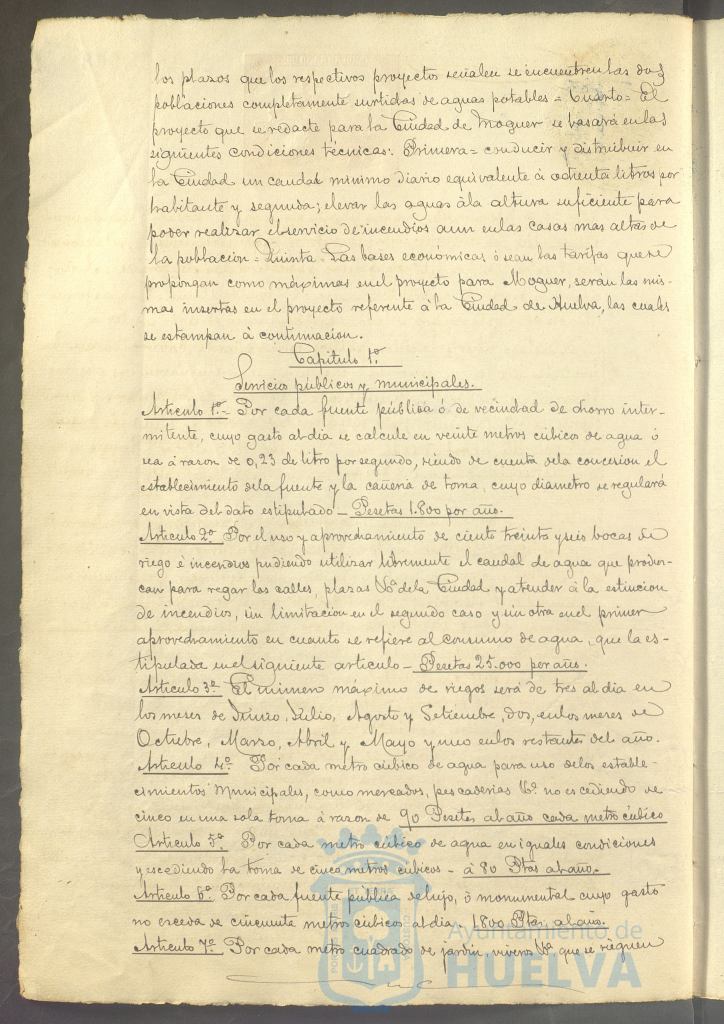 los plazos que los respectivos proyectos señalen se encuentren las dos
poblaciones completamente surtidas de aguas potables = Cuarto = El
proyecto que se redacte para la Ciudad de Moguer se basará en las
siguientes condiciones técnicas: Primera = conducir y distribuir en
la Ciudad un caudal minimo diario equivalente á ochenta litros por
habitante y segunda; elevar las aguas á la altura suficiente para
poder realizar el servicio de incendios aun en las casas mas altas de
la poblacion = Quinta. Las bases económicas ó sean las tarifas que se
propongan como máximas en el proyecto para Moguer, serán las mis-
mas insertas en el proyecto referente á la Ciudad de Huelva, las cuales
se estampan á continuacion.
Capitulo 1º
Servicios públicos y municipales.
Articulo 1º = Por cada fuente pública ó de vecindad de chorro inter-
mitente, cuyo gasto al dia se calcule en veinte metros cúbicos de agua ó
sea á razon de 0,23 de litro por segundo, siendo de cuenta de la concesion el
establecimiento de la fuente y la cañeria de toma, cuyo diametro se regulará
en vista del dato estipulado = Pesetas 1.800 por año.
Articulo 2º Por el uso y aprovechamiento de ciento treinta y seis bocas de
riego é incendios pudiendo utilizar libremente el caudal de agua que produz-
can para regar las calles, plazas &ª de la Ciudad y atender á la estincion
de incendios, sin limitacion en el segundo caso y sin otra en el primer
aprovechamiento en cuanto se refiere al consumo de agua, que la es-
tipulada en el siguiente articulo = Pesetas 25.000 por año.
Articulo 3º El número máximo de riegos será de tres al dia en
los meses de Junio, Julio, Agosto y Setiembre, dos, en los meses de
Octubre, Marzo, Abril y Mayo y uno en los restantes del año.
Articulo 4º Por cada metro cúbico de agua para uso de los estable-
cimientos Municipales, como mercados, pescaderias &ª no escediendo de
cinco en una sola toma á razon de 90 Pesetas al año cada metro cúbico
Articulo 5º Por cada metro cúbico de agua en iguales condiciones
y escediendo la toma de cinco metros cúbicos - á 80 Ptas al año.
Articulo 6º Por cada fuente pública de lujo, ó monumental cuyo gasto
no esceda de cincuenta metros cúbicos al dia 1800 Ptas. al año.
Articulo 7º Por cada metro cuadrado de jardin, viveros &ª, que se rieguen
Ayuntamiento de
HUELVA